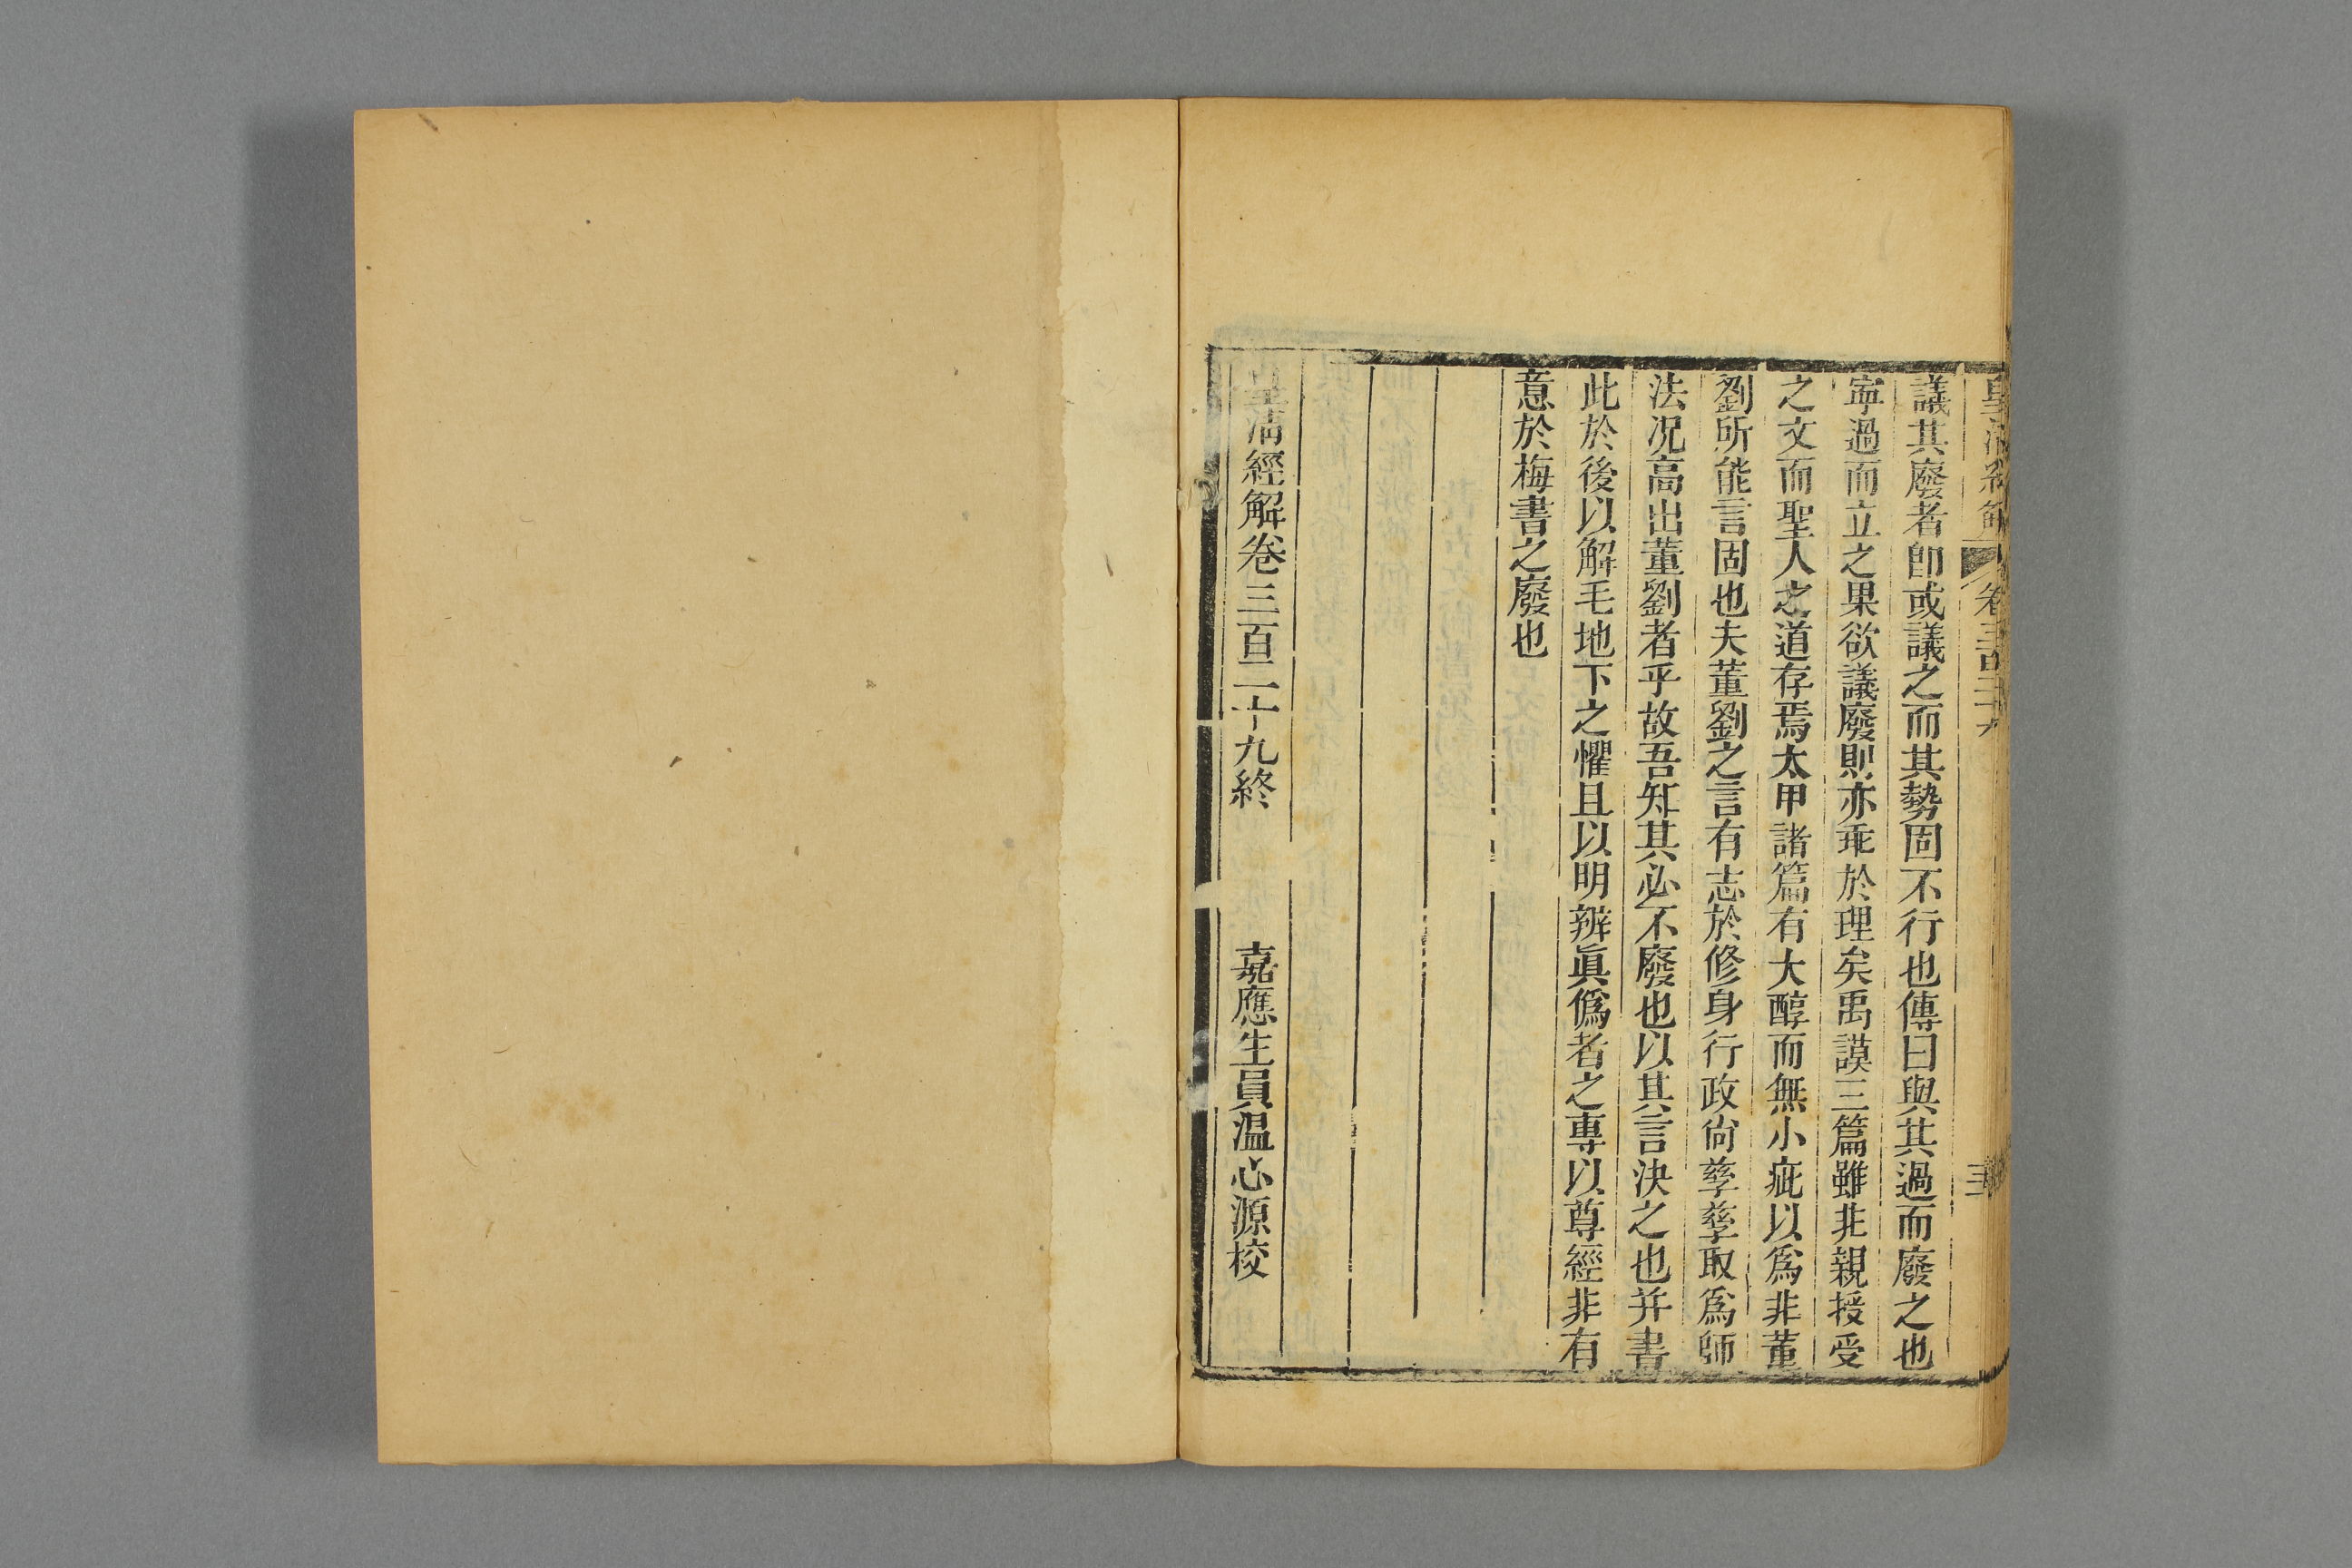 皇清經解 卷三百二十九
議其廢者卽或議之而其勢固不行也傳曰與其過而廢之也
寧過而立之果欲議廢則亦乖於理矣禹謨三篇雖非親授受
之文而聖人之道存焉太甲諸篇有大醇而無小疵以爲非董
劉所能言固也夫董劉之言有志於修身行政尙孳孳取爲師
法况高出董劉者乎故吾知其必不廢也以其言決之也并書
此於後以解毛地下之懼且以明辨眞僞者之專以尊經非有
意於梅書之廢也
皇淸經解卷三百二十九終 嘉應生員温心源校